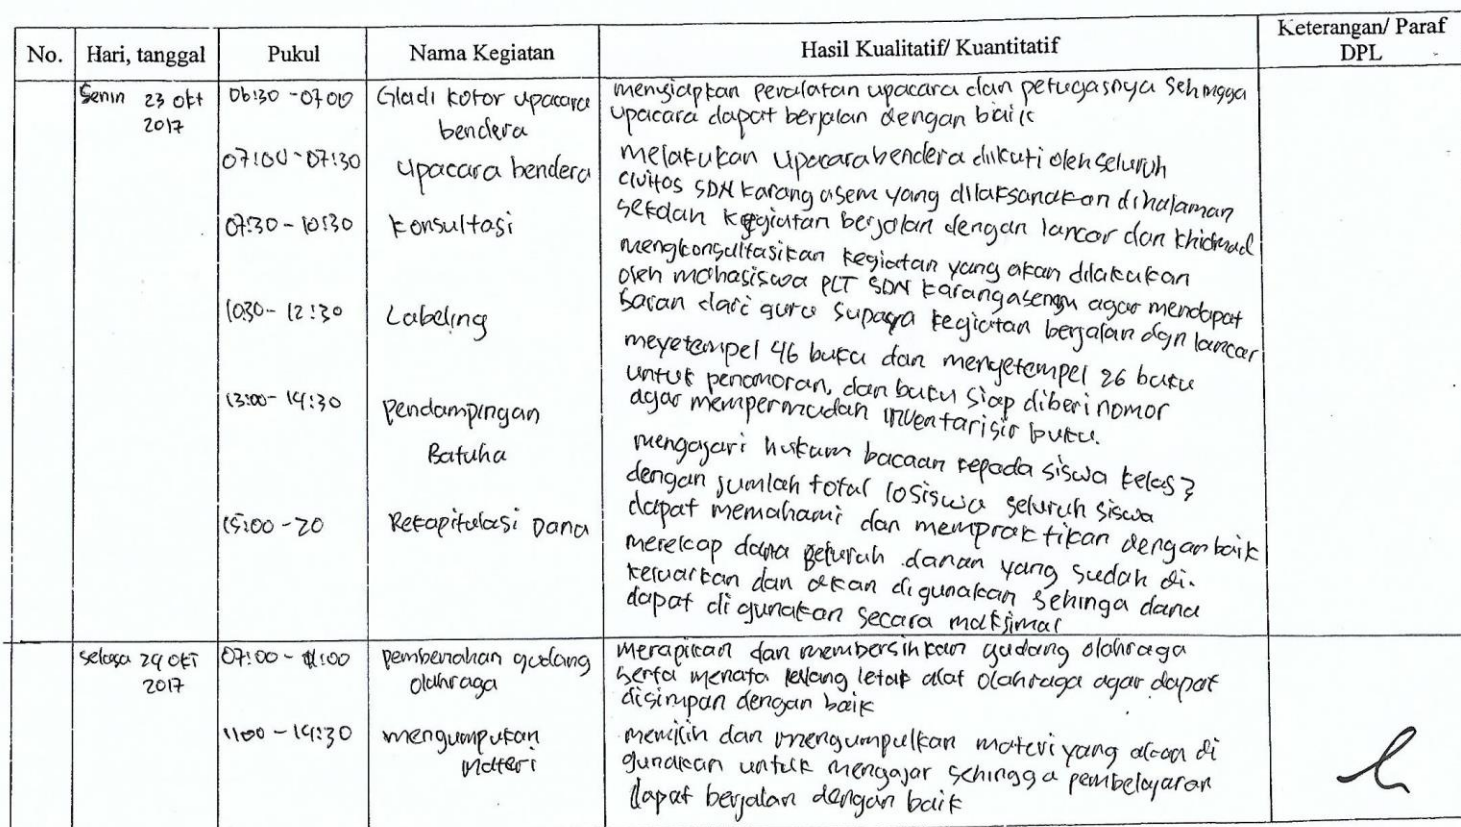 No. Hari, tanggal Pukul Nama Kegiatan Hasil Kualitatif/ Kuantitatif Keterangan/ Paraf DPL
Senin 23 okt 2017
06:30 - 07:00
Gladi kotor upacara
bendera
menyiapkan peralatan upacara dan petugasnya Sehingga
upacara dapat berjalan dengan baik
07:00 - 07:30
upacara bendera
melakukan upacara bendera diikuti oleh seluruh
civitos SDN karang asem yang dilaksanakan dihalaman
dan kegiatan berjalan dengan lancar dan khidmad
07:30 - 10:30
konsultasi
mengkonsultasikan kegiatan yang akan dilakukan
oleh mahasiswa PLT SDN agar mendapat
saran dari guru supaya kegiatan berjalan dgn lancar
1030 - 12:30
Labeling
meyetempel 46 buku dan menyetempel 26 buku
untuk penomoran, dan buku siap diberi nomor
agar mempermudah inventarisir buku.
13:00 - 14:30
Pendampingan
Batuha
mengajari hukum bacaan kepada siswa kelas
dengan jumlah total 10 siswa seluruh siswa
dapat memahami dan mempraktikan dengan baik
15:00 - 20
Rekapitulasi Dana
merekap dana seluruh danan yang sudah di-
keluarkan dan akan digunakan sehinga dana
dapat di gunakan secara maksimal
selasa 24 OKT
2017
07:00 - 11:00
pembenahan gudang
olahraga
Merapikan dan membersihkan gudang olahraga
serta menata letak alat olahraga agar dapat
disimpan dengan baik
1100 - 14:30
mengumpulkan
materi
memilih dan mengumpulkan materi yang akan di
gunakan untuk mengajar sehingga pembelajaran
dapat berjalan dengan baik